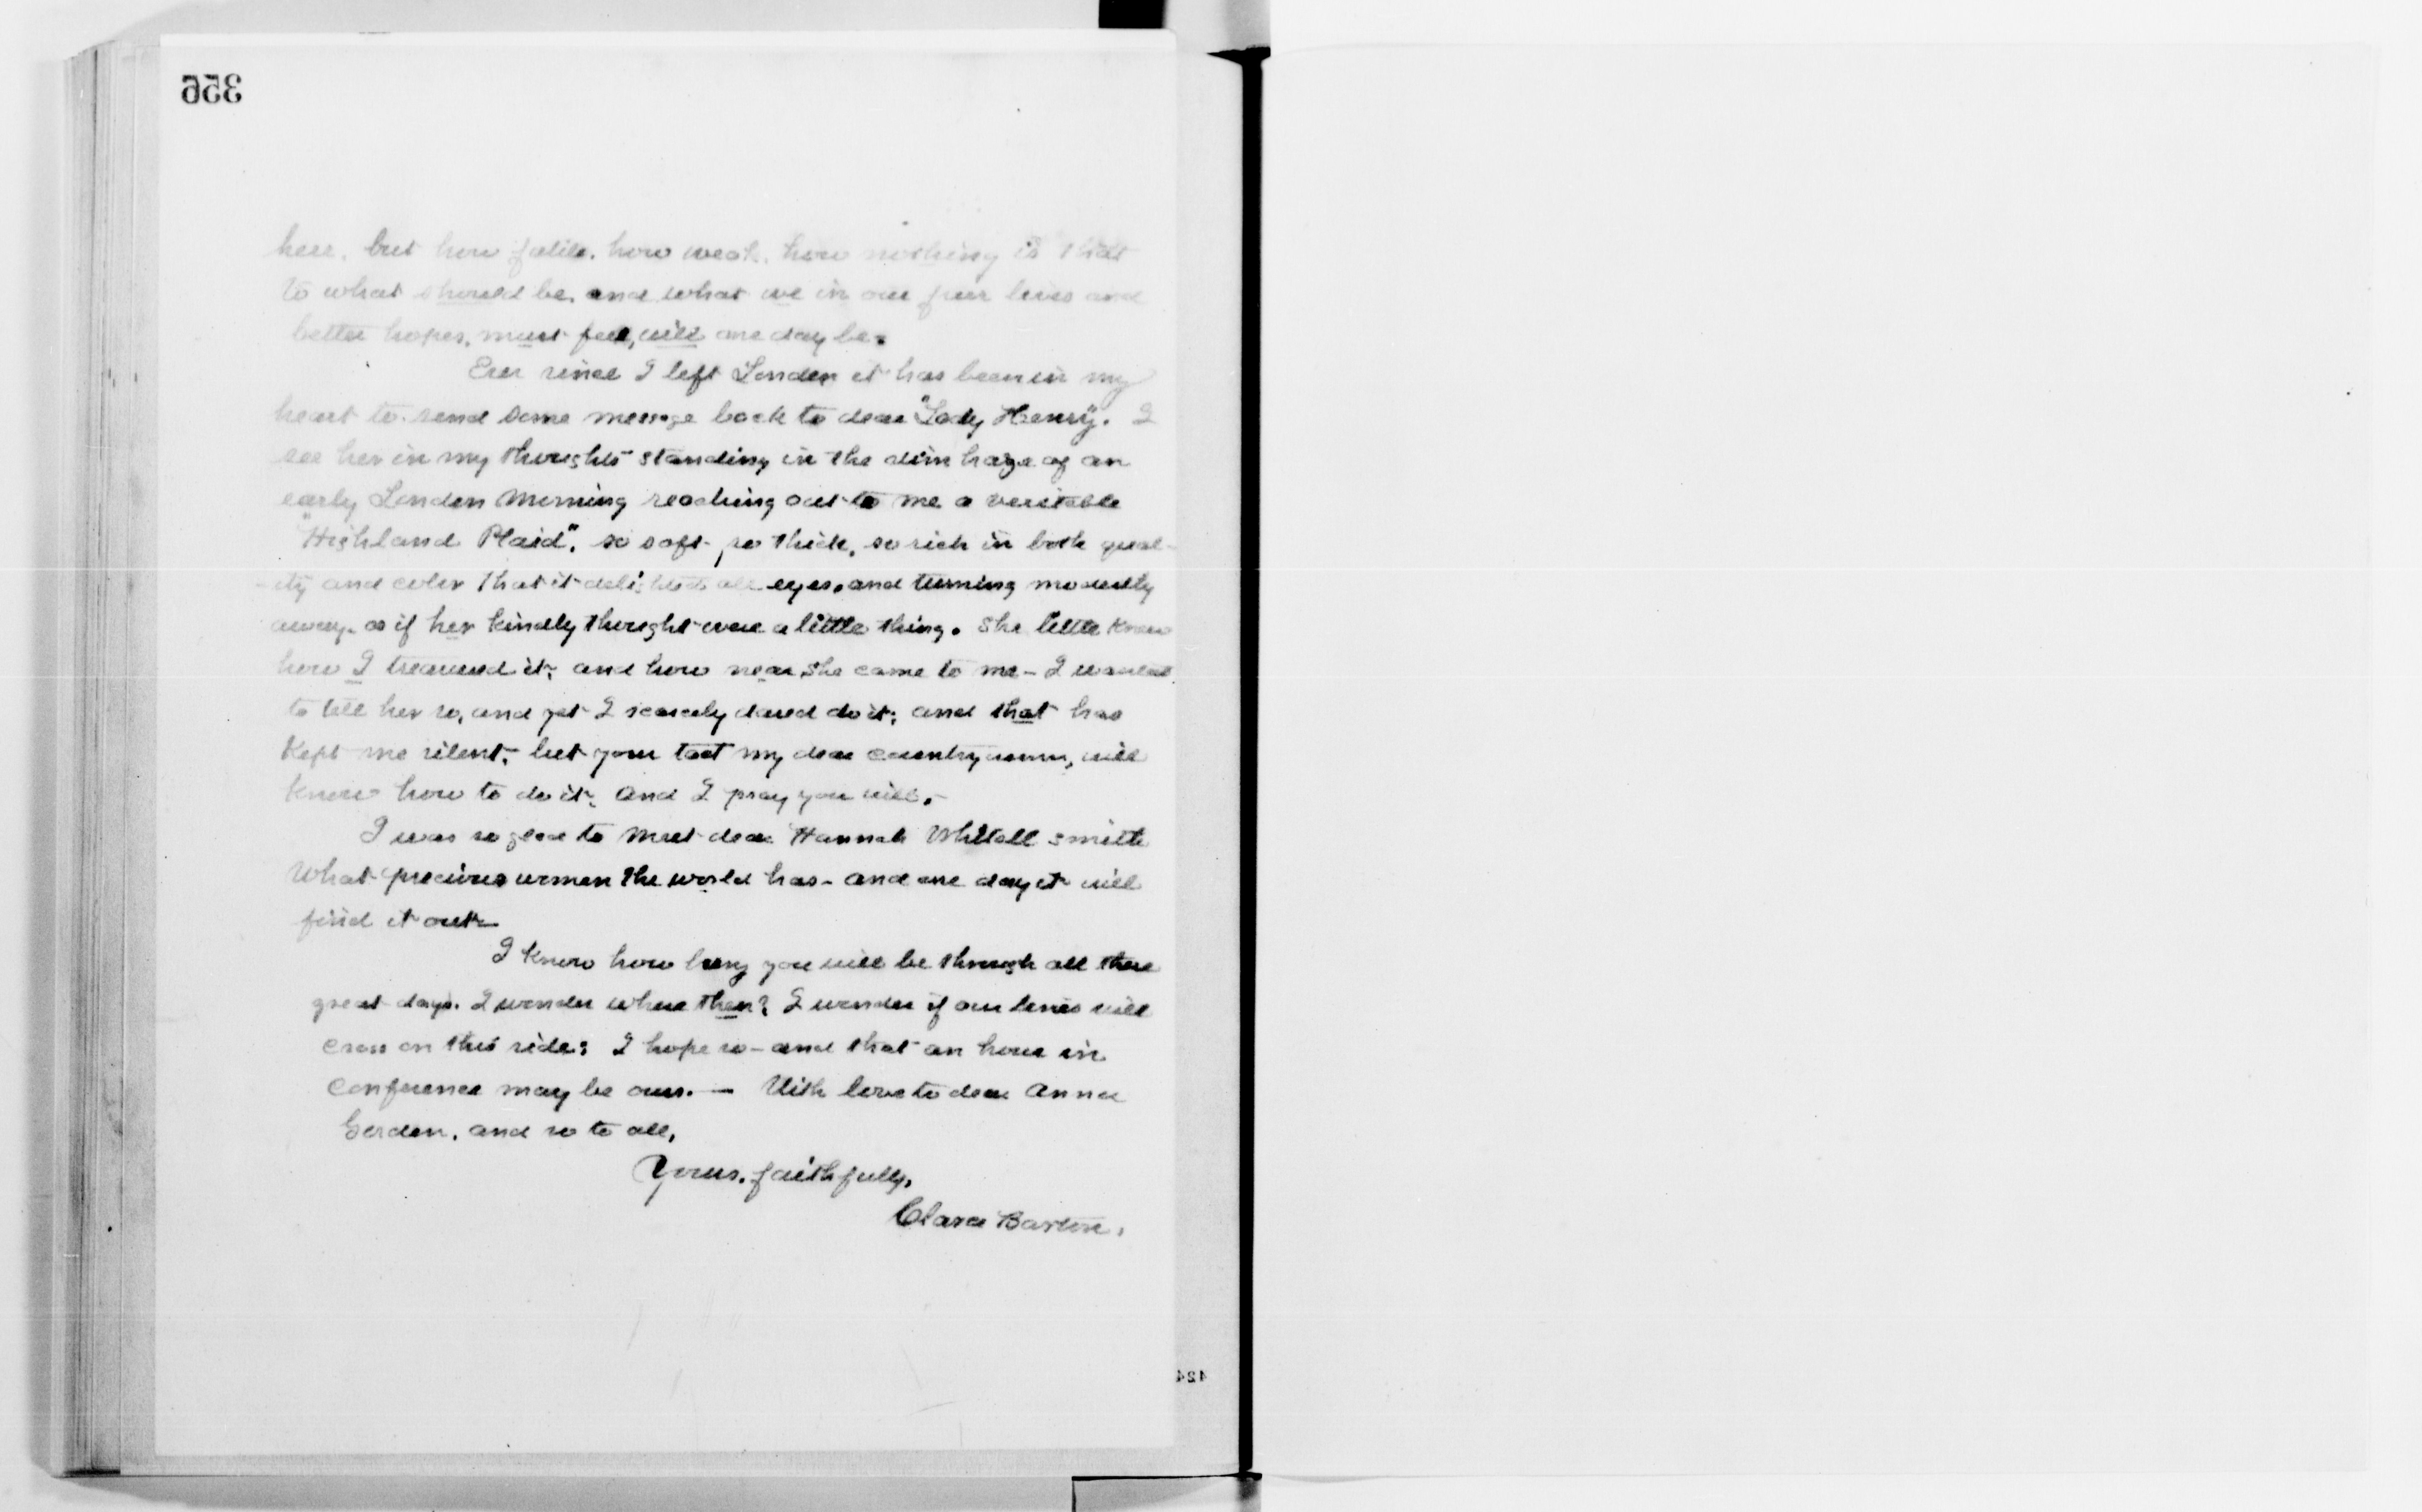 356
here, but how futile, how weak, how nothing is that
to what should be, and what we in our pure lives and
better hopes, must feel, will one day be.
Ever since I left London it has been in my
heart to send some message back to dear "Lady Henry". I
see her in my thoughts standing in the dim haze of an
early London morning reaching out to me a veritable
"Highland Plaid", so soft, so thick, so rich in both qual-
-ity and color that it delighted all eyes, and turning modestly
away, as if her kindly thought were a little thing. She little knew
how I treasured it, and how near she came to me - I wanted
to tell her so, and yet I scarcely dared do it; and that has
kept me silent; but your tact my dear countrywoman, will
know how to do it, and I pray you will.
I was so glad to meet dear Hannah Whitall Smith
What precious women the world has - and one day it will
find it out -
I know how busy you will be through all these
great days. I wonder where then? I wonder if our lines will
cross on this side; I hope so - and that an hour in
conference may be ours. — With love to dear Anna
Gordon, and so to all,
Yours, faithfully,
Clara Barton.
424